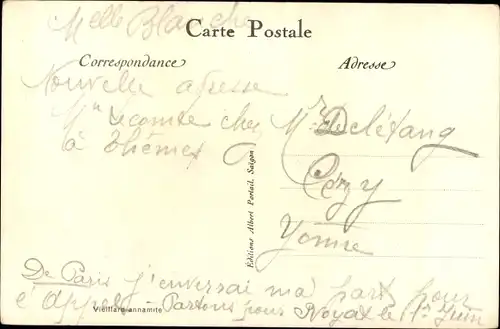 Melle Blanche
Carte Postale
Correspondance
Adresse
Nouvelle adresse
Mr Lecomte chez Mr Delétang
à Thèmes
Cézy
Yonne
Editions Albert Portail, Saigon
De Paris j'enverrai ma part pour
Vieillard annamite
l'appel - Partons pour Royat le 1er Juin